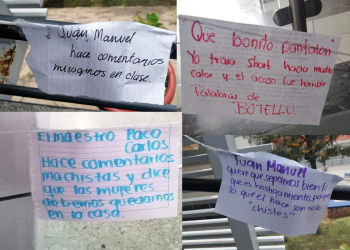 Juan Manuel
hace comentarios
misoginos en clase.
"Que bonito pantalon"
Yo traia short hacia mucho
calor y el acoso fue horrible
Palabras de
BOTELLO
El maestro Paco
Carlos
Hace comentarios
machistas y dice
que las mujeres
debemos quedarnos
en la casa.
Juan Manuel
quiere que sepamos bien lo
que es hostigamiento, porque
lo que el hace son solo
chistes"